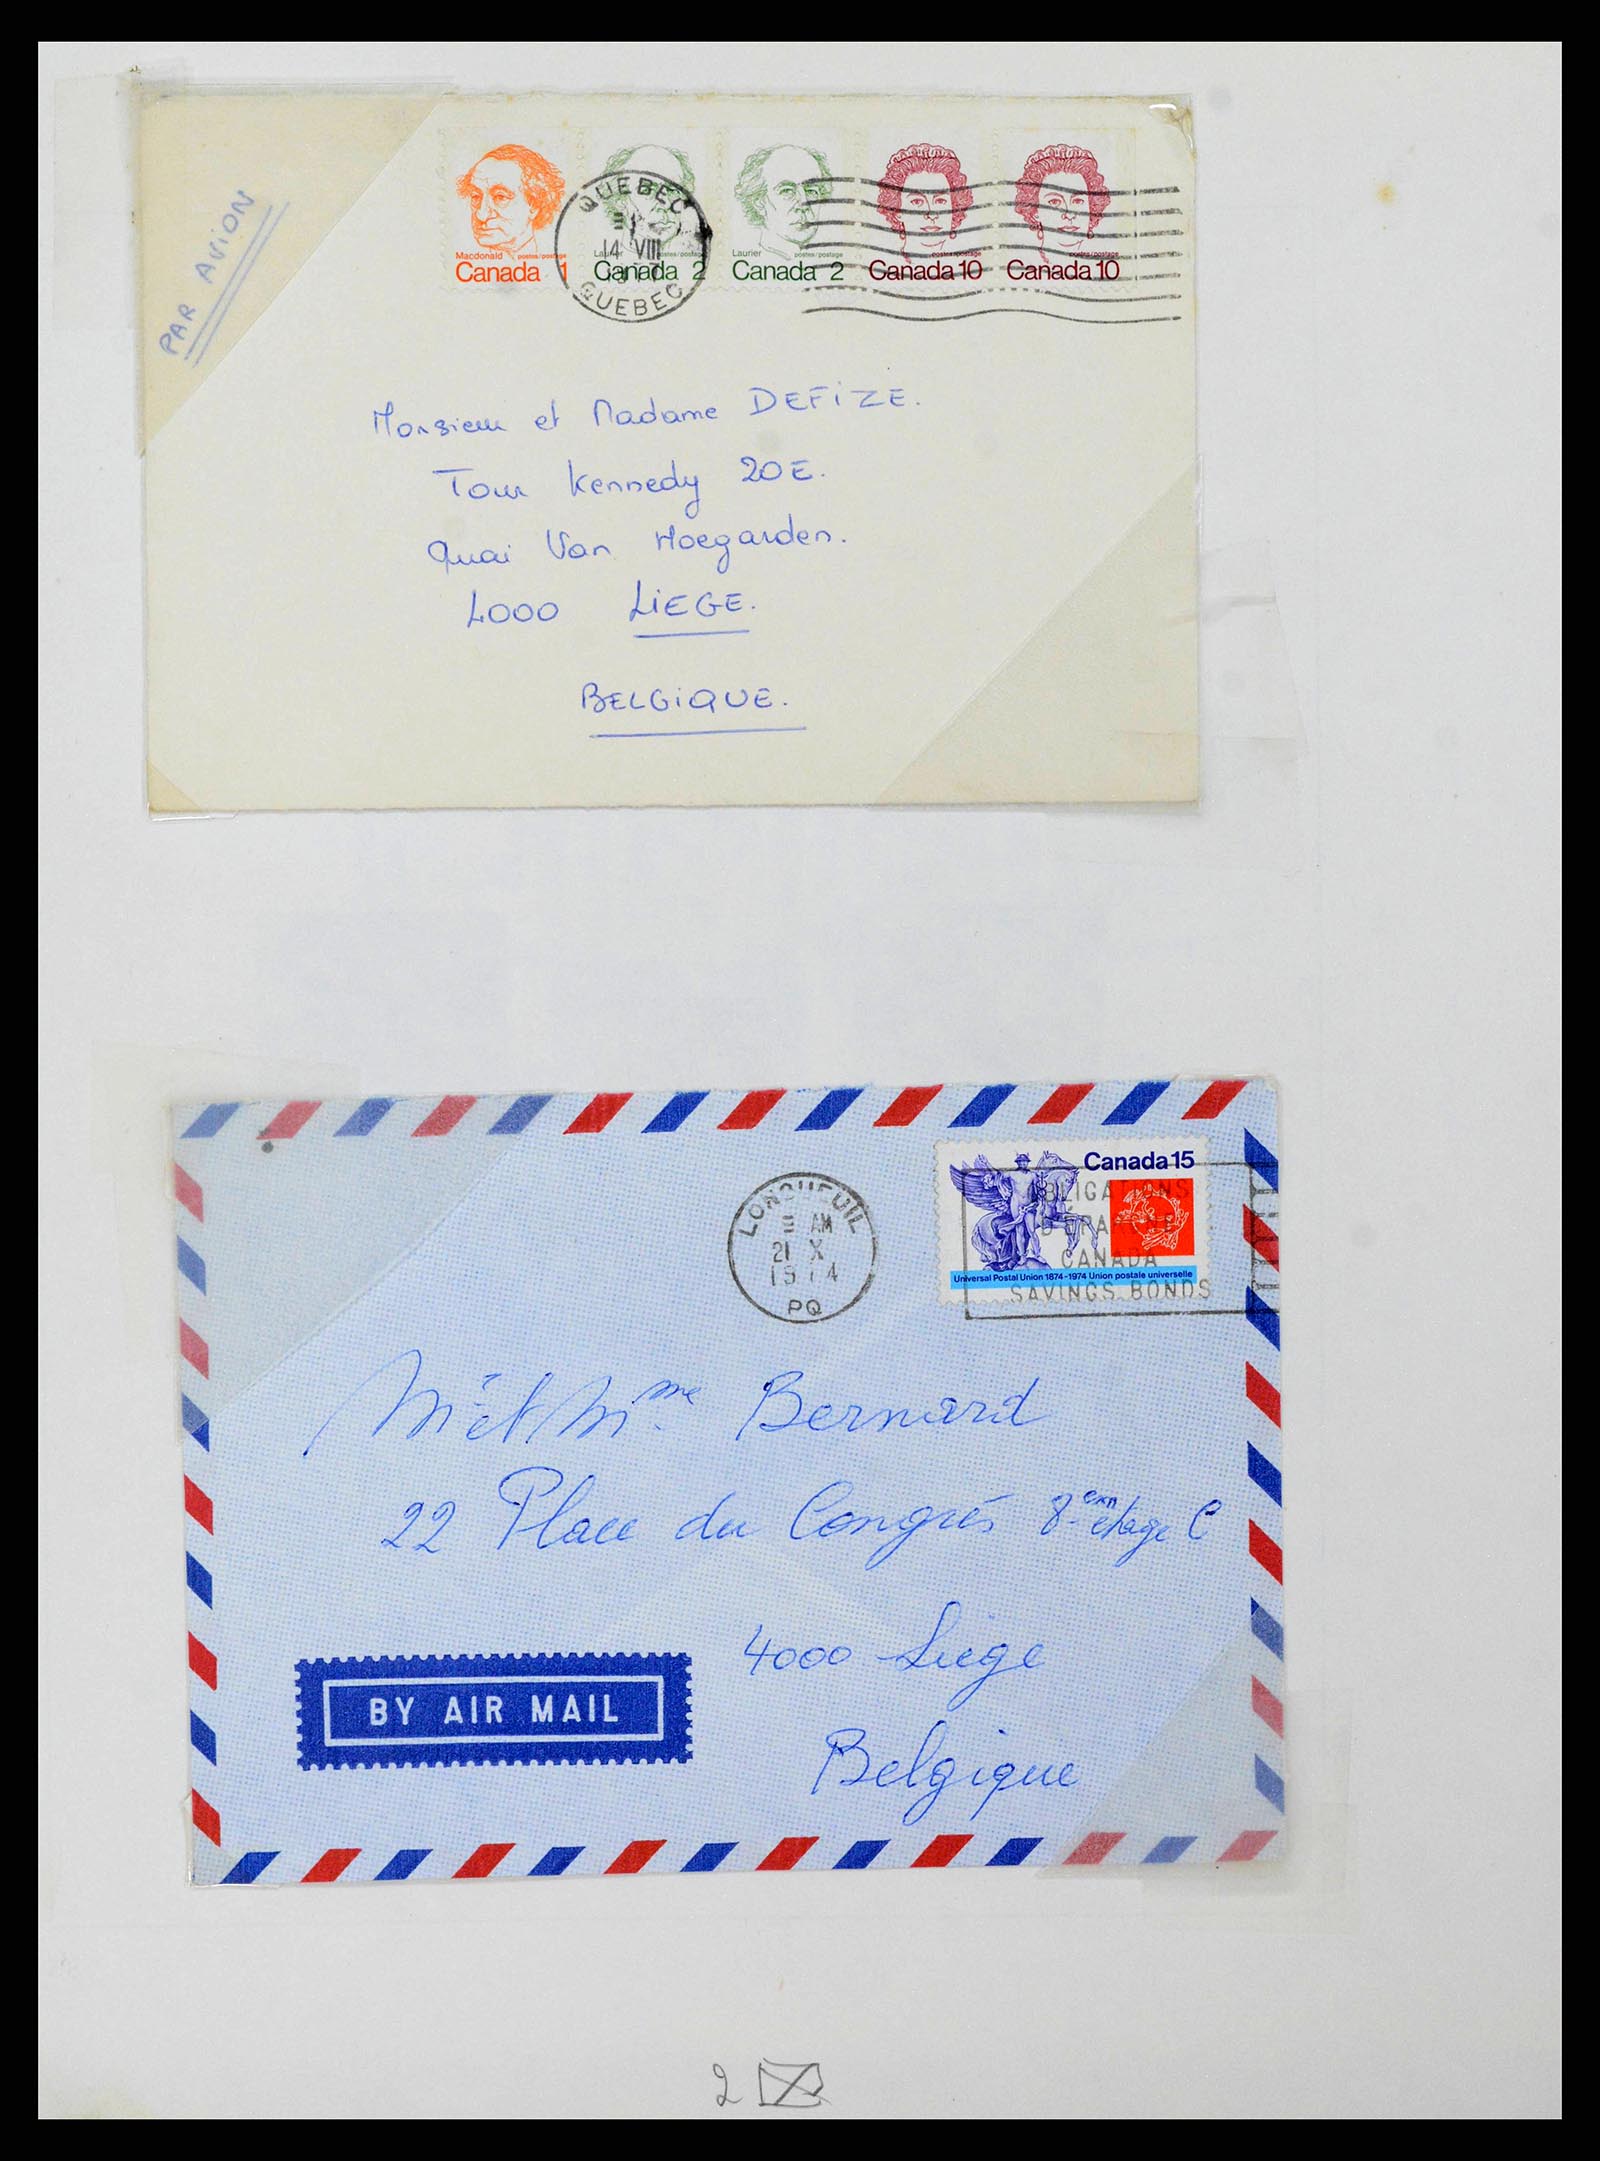 PAR AVION
Macdonald postes/postage
Canada 1
Laurier postes/postage
Canada 2
Laurier postes/postage
Canada 2
postes/postage
Canada 10
postes/postage
Canada 10
QUEBEC
14 VIII
QUEBEC
Monsieur et Madame DEFiZE.
Tour Kennedy 20E.
Quai Van Hoegarden.
4000 LiEGE.
BELGiQUE.
Canada 15
Universal Postal Union 1874-1974 Union postale universelle
LONGUEUIL
AM
21 X
1974
PQ
OBLIGATIONS
D'ÉPARGNE
CANADA
SAVINGS BONDS
M et Mme Bernard
22 Place du Congrés 8em étage C
4000 Liege
Belgique
BY AIR MAIL
2